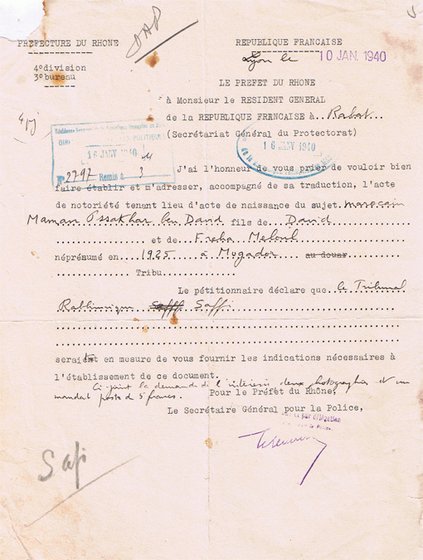 PREFECTURE DU RHONE
REPUBLIQUE FRANCAISE
Lyon le 10 JAN. 1940
4°division
3°bureau
LE PREFET DU RHONE
à Monsieur le RESIDENT GENERAL
de la REPUBLIQUE FRANCAISE à Rabat
(Secrétariat Général du Protectorat)
16 JANV 1940
16 JANV 1940
N° 2797 Remis à 3
J'ai l'honneur de vous prier de vouloir bien
faire établir et m'adresser, accompagné de sa traduction, l'acte
de notoriété tenant lieu d'acte de naissance du sujet marocain
Maman Ossakhar ben David fils de David
et de Freha Meloul
néprésumé en 1925 à Mogador au douar
Tribu
Le pétitionnaire déclare que le Tribunal
Rabbinique Saffi
seraient en mesure de vous fournir les indications nécessaires à
l'établissement de ce document.
Ci joint la demande de l'intéressé deux photographies et un
mandat poste de 5 francs.
Pour le Préfet du Rhône,
Le Secrétaire Général pour la Police,
Safi